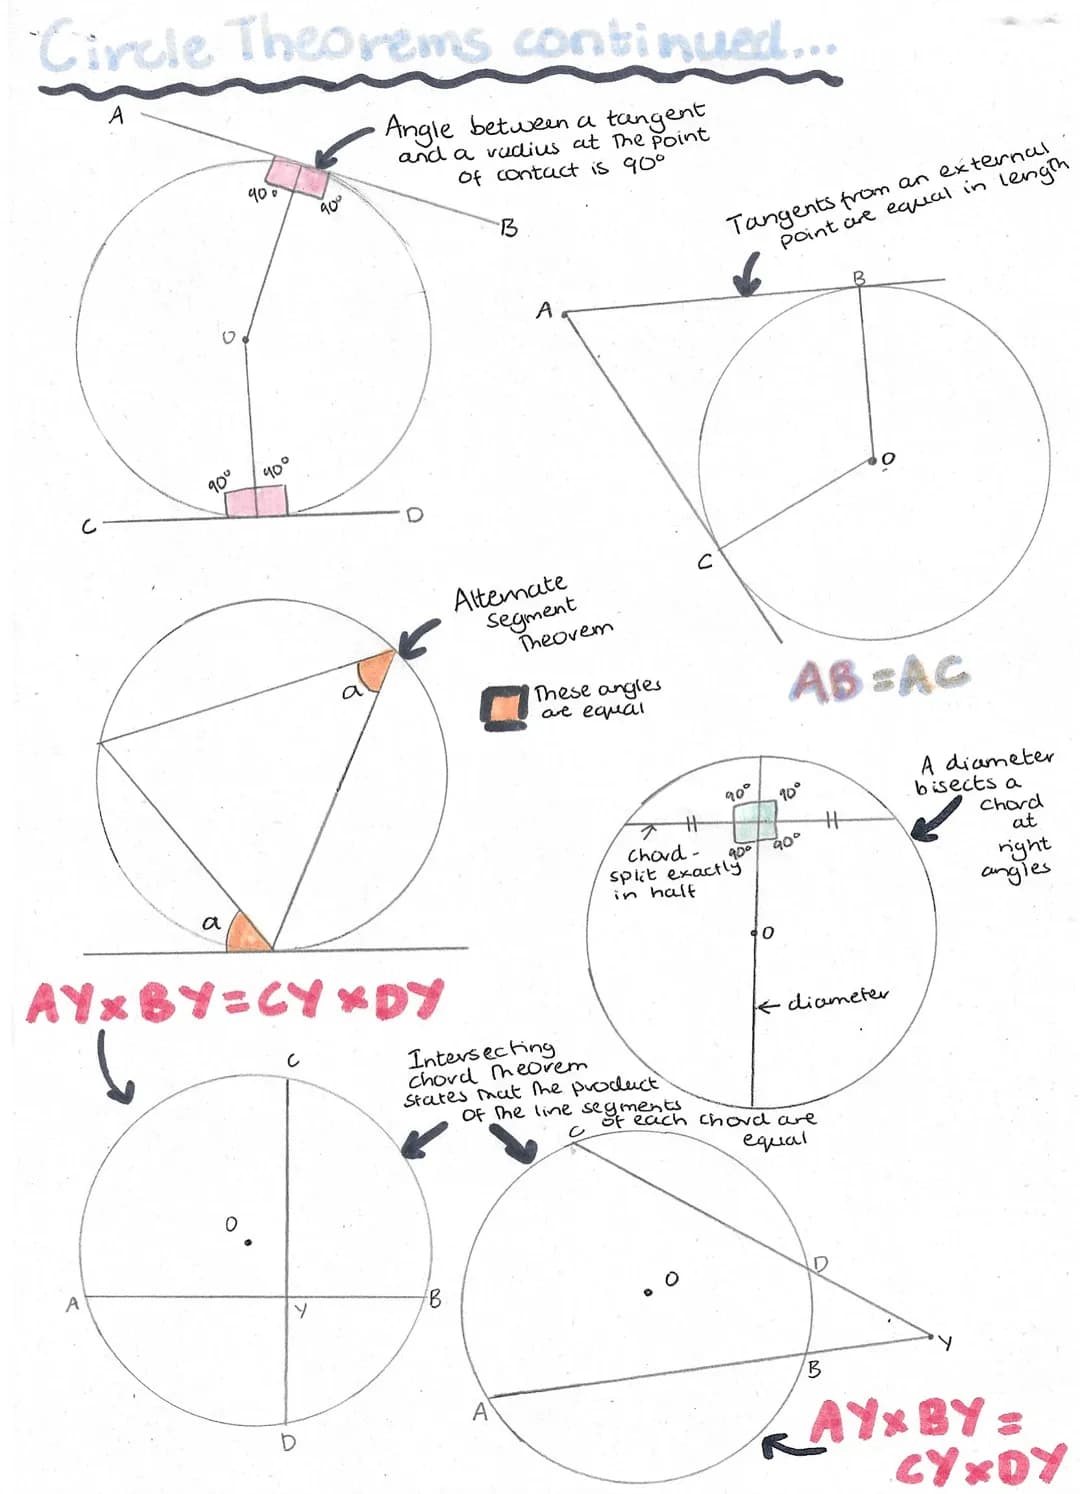 Circle Theorems continued...
A
Angle between a tangent
and a radius at the point
of contact is 90°
90°
90°
B
O
90°
90°
C
D
Tangents from an external
point are equal in length
A
B
O
C
AB=AC
Alternate
segment
Theorem
a
These angles
are equal
a
A diameter
bisects a
chord
at
right
angles
90°
90°
90°
90°
chord-
split exactly
in half
O
diameter
AY×BY=CY×DY
Intersecting
chord Theorem
states that the product
of the line segments
of each chord are
equal
C
O
A
Y
B
D
C
O
D
Y
B
A
AY×BY=
CY×DY